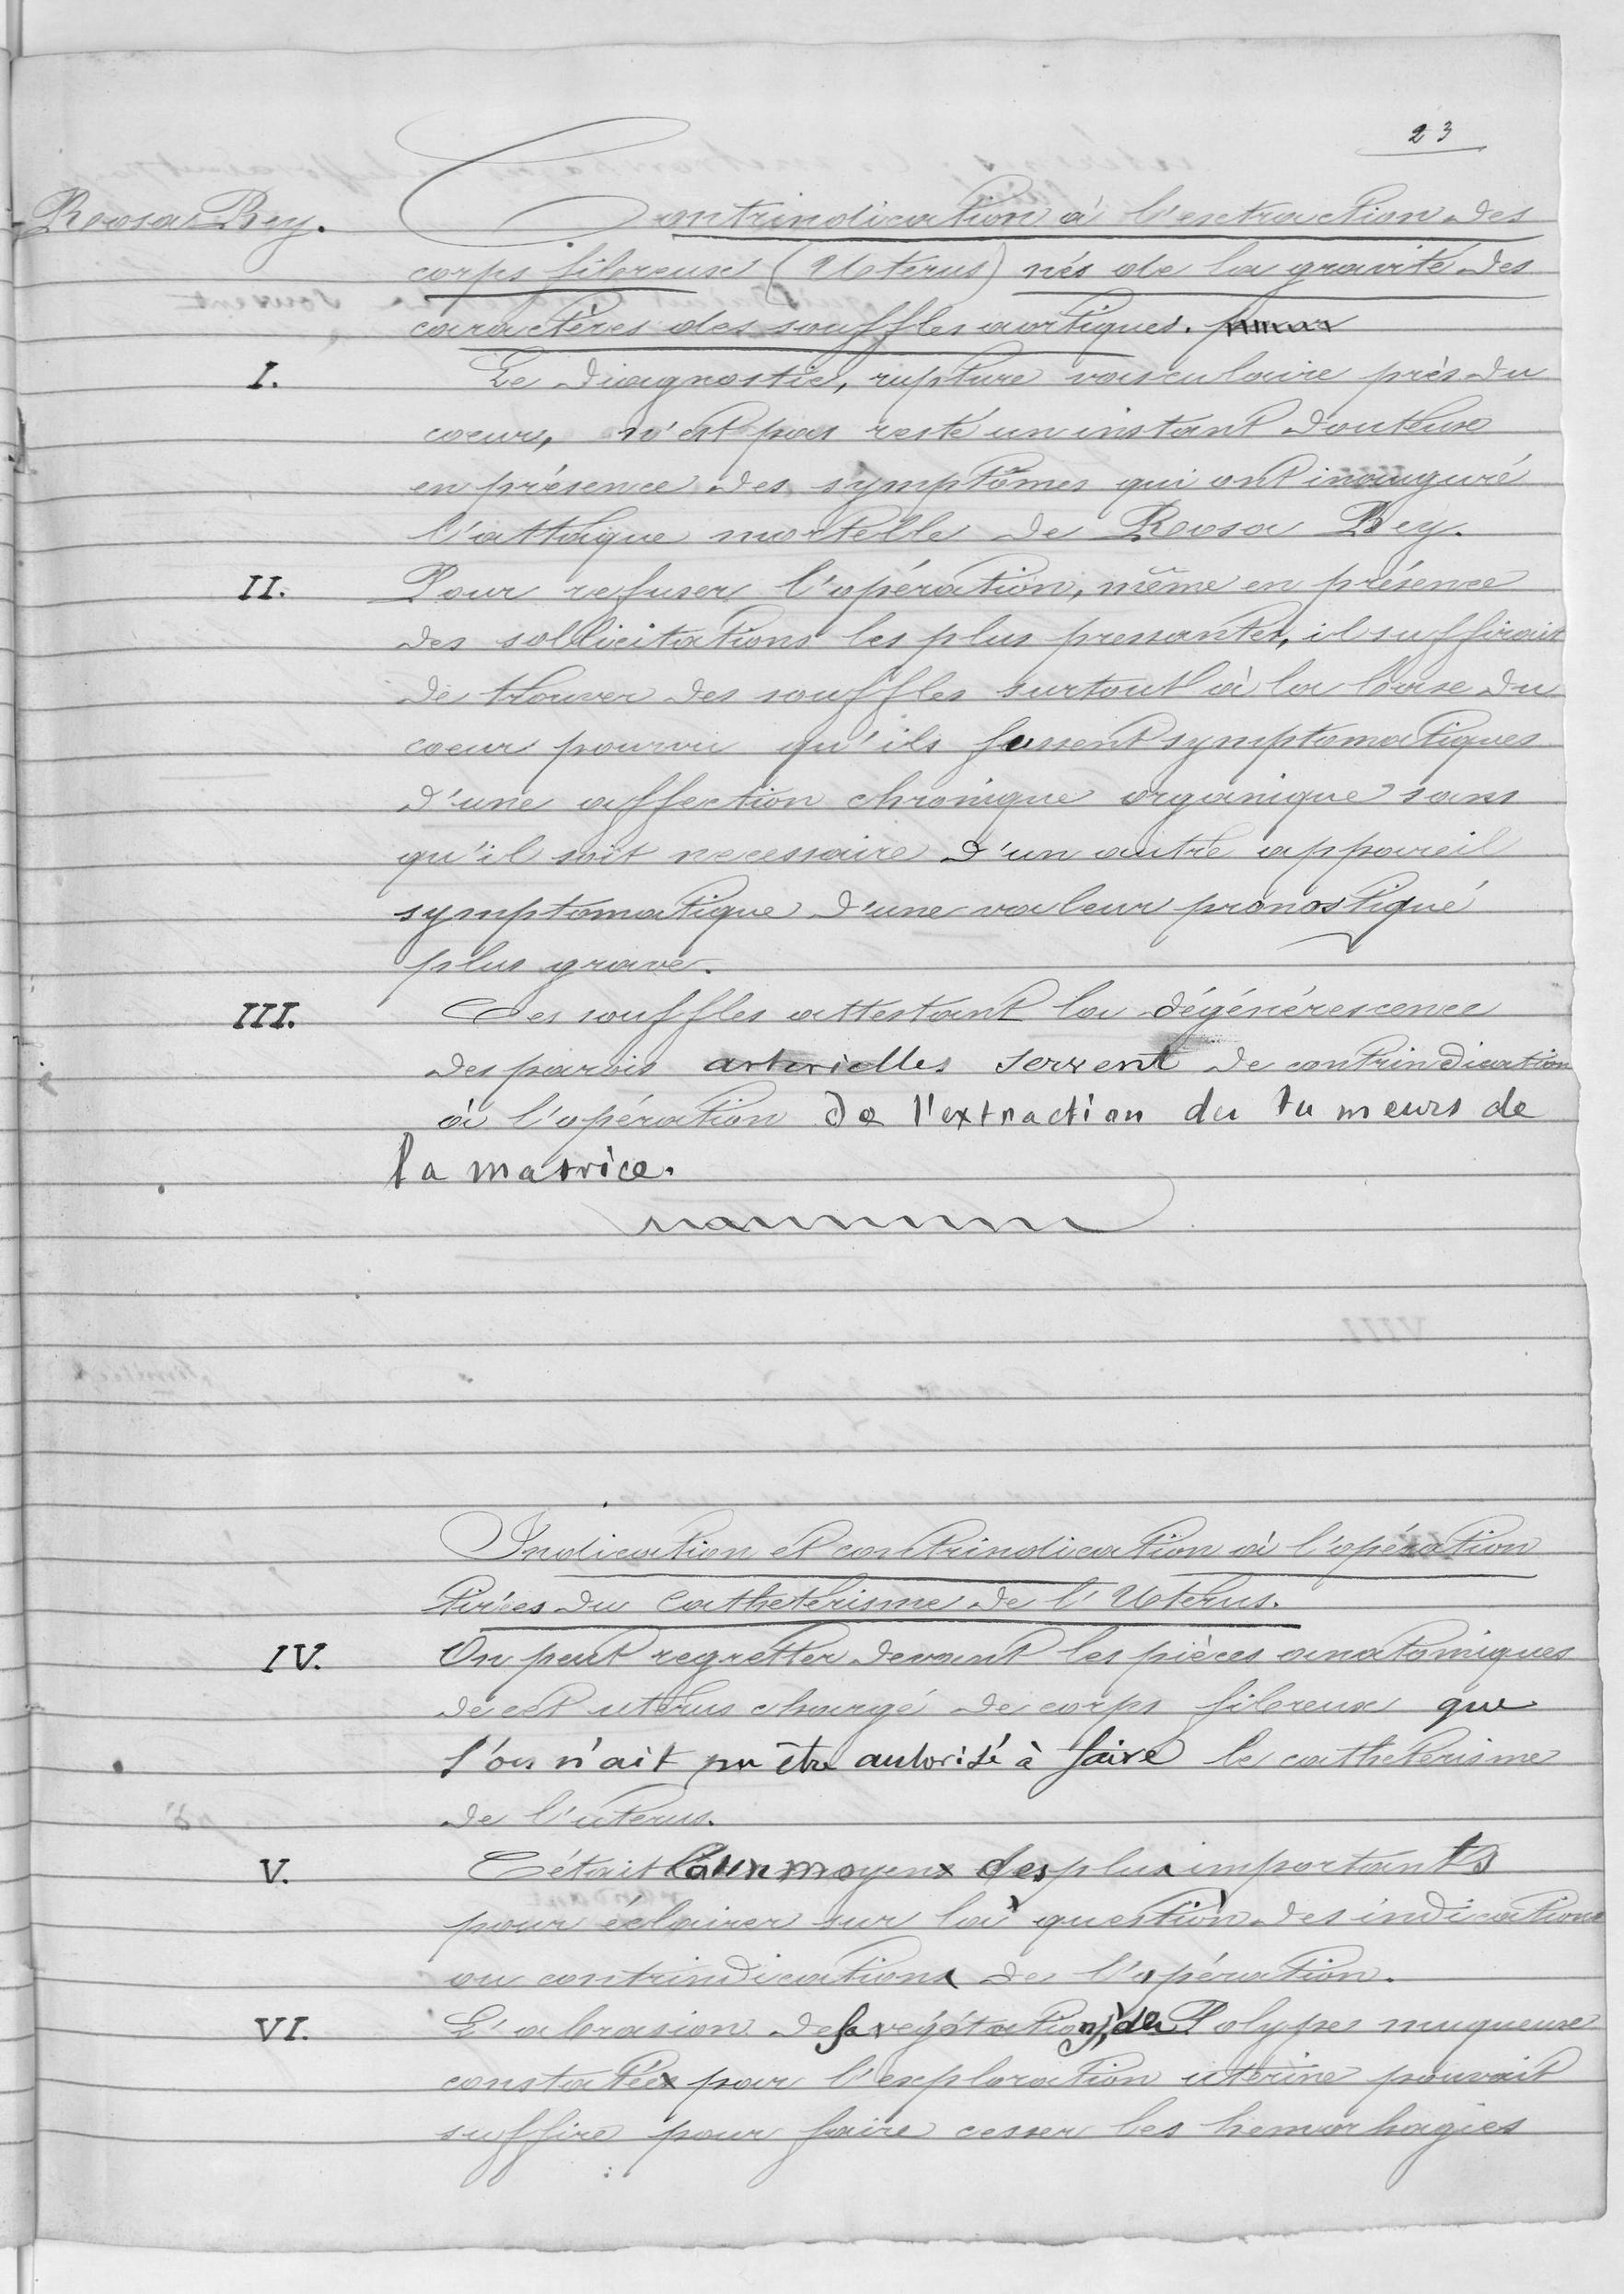 23
Rosa Rey.
Contrindication à l'extraction des
corps fibreux (Uterus) nés de la gravité des
caractères des souffles aortiques.
I. Le diagnostic, rupture vasculaire près du
coeur, n'est pas resté un instant douteux
en présence des symptômes qui ont inauguré
l'attaque mortelle de Rosa Rey.
II. Pour refuser l'opération, même en présence
des sollicitations les plus pressantes, il suffirait
de trouver des souffles surtout à la base du
coeur pourvu qu'ils fussent symptomatiques
d'une affection chronique organique sans
qu'il soit necessaire d'un autre appareil
symptomatique d'une valeur pronostique
plus grave.
III. Ces souffles attestant la dégénérescence
des parois arterielles servent de contrindication
à l'opération de l'extraction du tumeurs de
la matrice.
Indication et contrindication à l'opération
tirées du Cathetérisme de l'Uterus.
IV. On peut regretter devant les pièces anatomiques
de cet uterus chargé de corps fibreux que
l'on n'ait pu être autorisé à faire le catheterisme
de l'uterus.
V. C'était un moyen des plus importants
pour éclairer sur la question des indications
ou contrindications de l'opération.
VI. L'abrasion de la végétation, des Polypes muqueux
constatée par l'exploration uterine pouvait
suffire pour faire cesser les hemorhagies